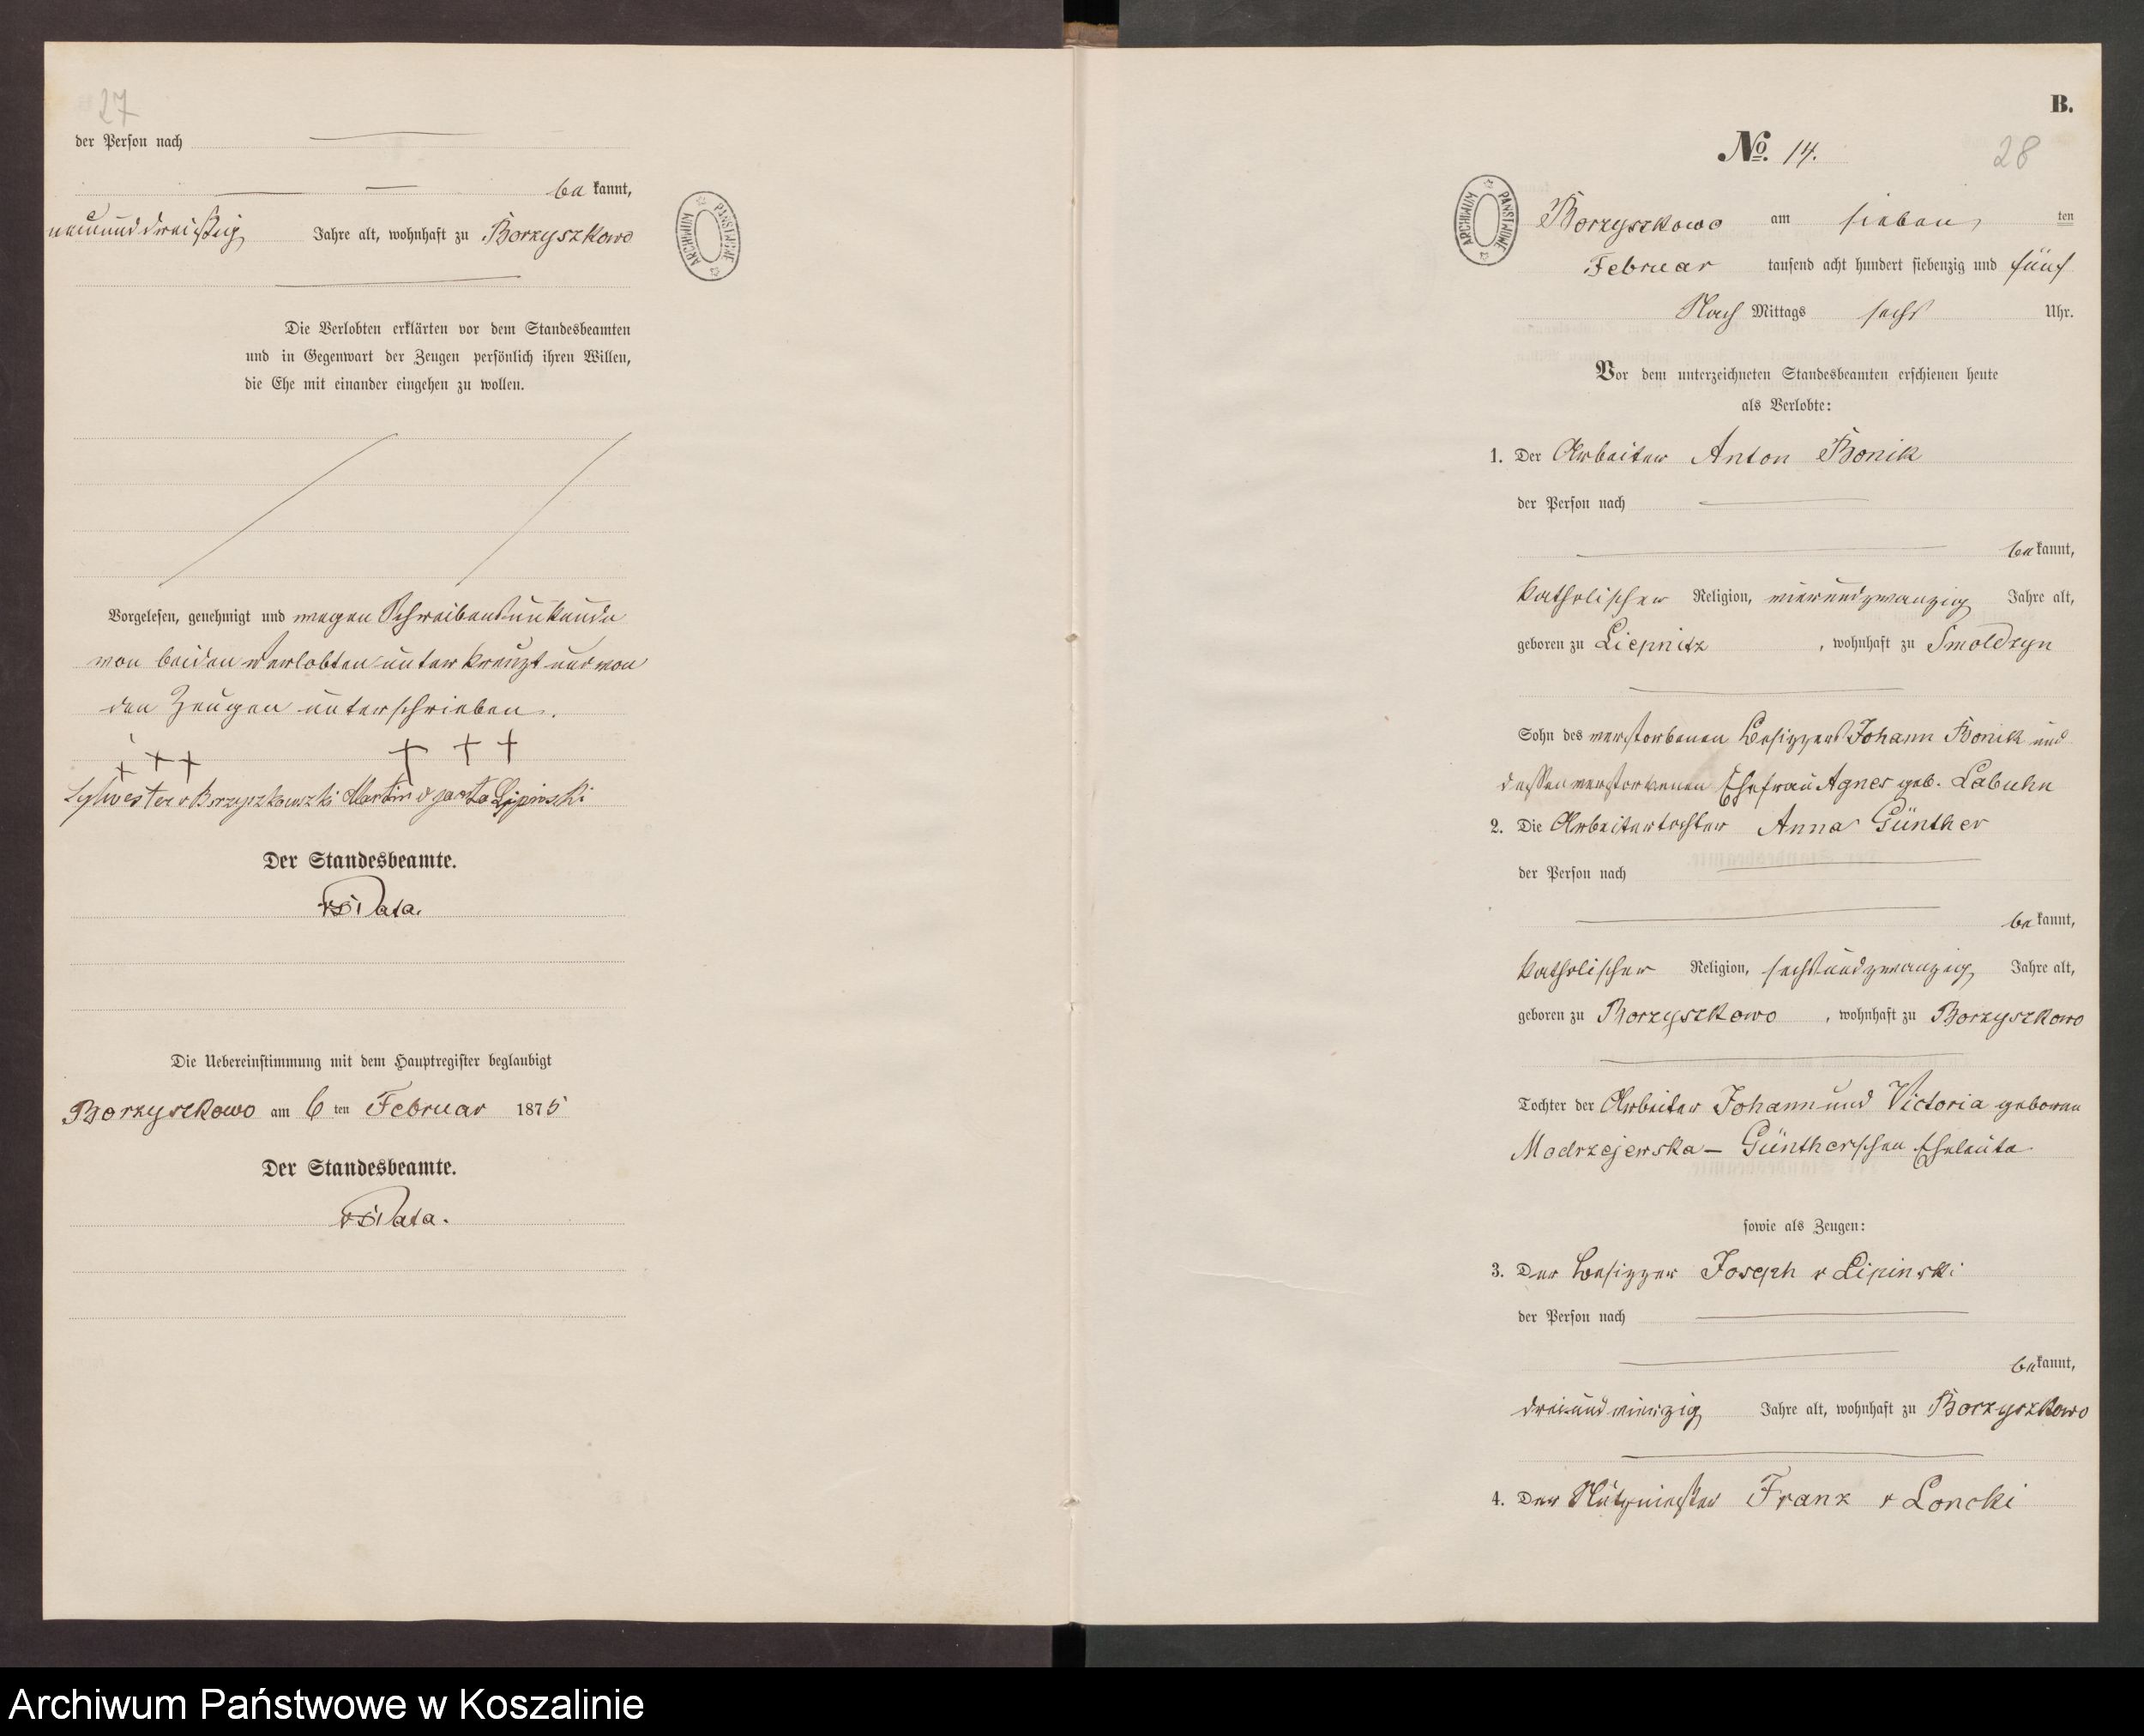 27
der Person nach
bekannt,
neununddreißig Jahre alt, wohnhaft zu Borzyszkowo
Die Verlobten erklärten vor dem Standesbeamten
und in Gegenwart der Zeugen persönlich ihren Willen,
die Ehe mit einander eingehen zu wollen.
Vorgelesen, genehmigt und wegen Schreibensunkunde
von beiden Verlobten unterkreuzt und von
den Zeugen unterschrieben.
+ + + + + +
Sylwester v Borzyszkowski Martin v Lipinski
Der Standesbeamte.
Data.
Die Uebereinstimmung mit dem Hauptregister beglaubigt
Borzyszkowo am 6 ten Februar 1875
Der Standesbeamte.
Data.
ARCHIWUM PAŃSTWOWE
B.
No. 14.
28
ARCHIWUM PAŃSTWOWE
Borzyszkowo am sieben ten
Februar tausend acht hundert siebenzig und fünf
Nach Mittags sechs Uhr.
Vor dem unterzeichneten Standesbeamten erschienen heute
als Verlobte:
1. Der Arbeiter Anton Bonik
der Person nach
bekannt,
katholischer Religion, vierundzwanzig Jahre alt,
geboren zu Liepnitz, wohnhaft zu Smoldzyn
Sohn des verstorbenen Besitzers Johann Bonik und
dessen verstorbenen Ehefrau Agnes geb. Labuhn
2. Die Arbeitertochter Anna Günther
der Person nach
bekannt,
katholischer Religion, sechsundzwanzig Jahre alt,
geboren zu Borzyszkowo, wohnhaft zu Borzyszkowo
Tochter der Arbeiter Johann und Victoria geborene
Modrzejewska - Günther'schen Eheleute
sowie als Zeugen:
3. Der Besitzer Joseph v Lipinski
der Person nach
bekannt,
dreiundvierzig Jahre alt, wohnhaft zu Borzyszkowo
4. Der Franz v Loncki
Archiwum Państwowe w Koszalinie